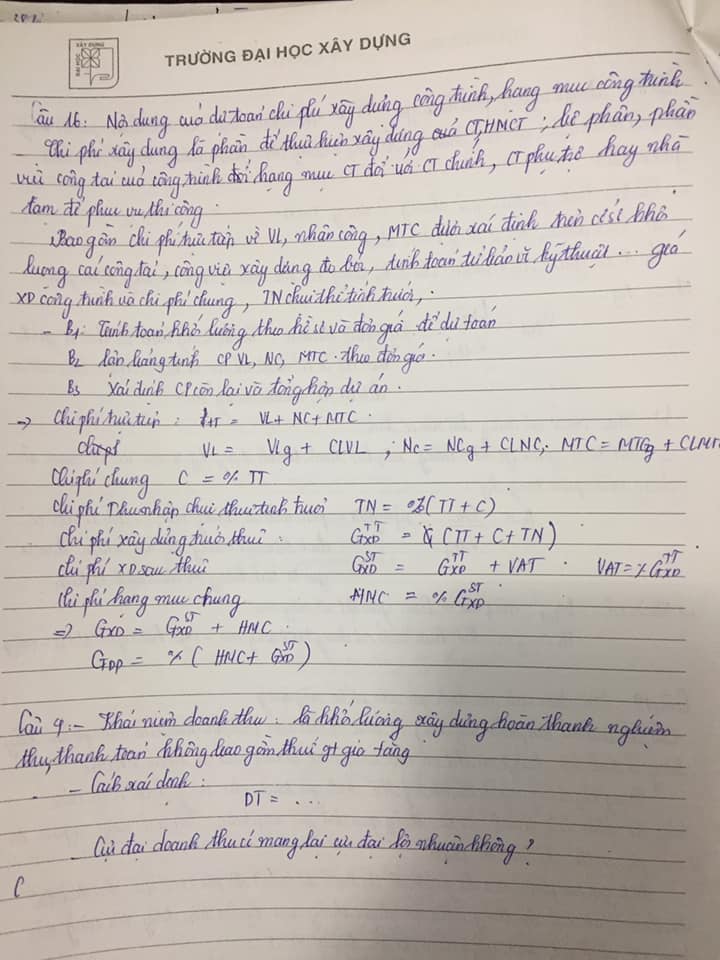 XÂY DỰNG
ĐẠI HỌC
TRƯỜNG ĐẠI HỌC XÂY DỰNG
Câu 16: Nội dung của dự toán chi phí xây dựng công trình, hạng mục công trình
Chi phí xây dựng là phần để thực hiện xây dựng của CT, HMCT; bộ phận, phần
việc công tác của công trình đối hạng mục CT đối với CT chính, CT phụ trợ hay nhà
tạm để phục vụ thi công.
Bao gồm chi phí trực tiếp về VL, nhân công, MTC được xác định trên cơ sở khối
lượng các công tác, công việc xây dựng đo bóc, tính toán từ bản vẽ kỹ thuật ... giá
XD công trình và chi phí chung, TN chịu thuế tính trước,.
- B1: Tính toán khối lượng theo hồ sơ và đơn giá để dự toán
B2 lần lượng tính CP VL, NC, MTC theo đơn giá.
B3 Xác định CP còn lại và tổng hợp dự án.
⇒ Chi phí trực tiếp: = VL + NC + MTC.
VL = VLg + CLVL ; NC = NCg + CLNC; MTC = MTCg + CLMTC
Chi phí chung C = % TT
Chi phí Thu nhập chịu thuế tính trước TN = %(TT + C)
Chi phí xây dựng trước thuế: G_XD^TT = (TT + C + TN)
chi phí XD sau thuế G_XD^ST = G_XD^TT + VAT . VAT = % G_XD^TT
Chi phí hạng mục chung HMC = % G_XD^ST
⇒ G_XD = G_XD^ST + HMC.
G_DP = % ( HMC + G_XD^ST )
Câu 9: - Khái niệm doanh thu: là khối lượng xây dựng hoàn thành nghiệm
thu, thanh toán không bao gồm thuế gt gia tăng
- Cách xác định:
DT = ...
Cực đại doanh thu có mang lại cực đại lợi nhuận không?
C